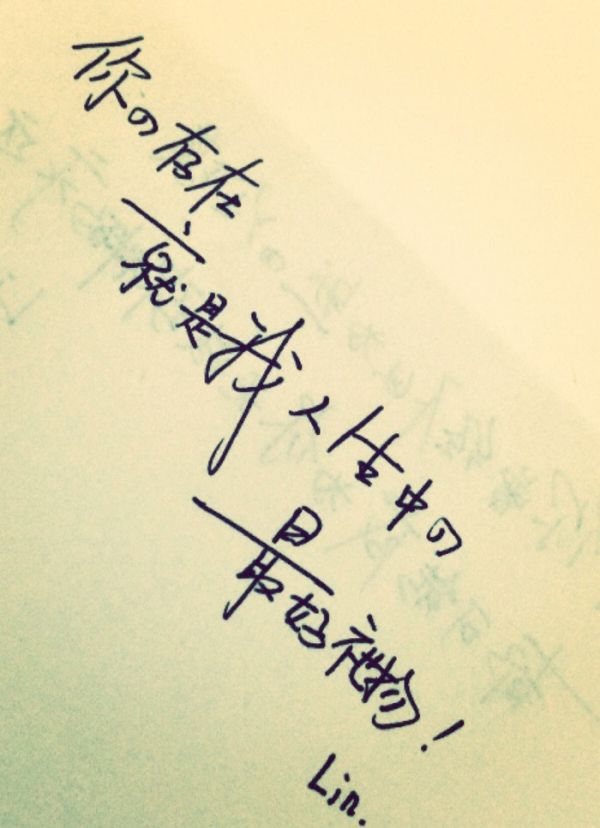 你の存在
就是我人生中の
最好礼物！
Lin.